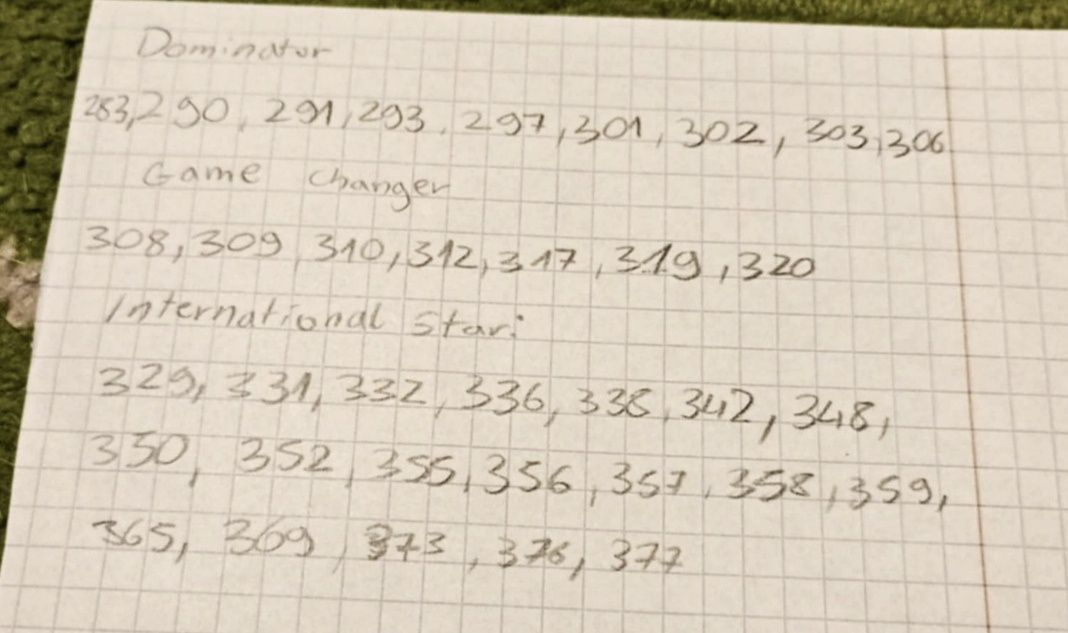 Dominator
283,290, 291,293, 297,301, 302, 303,306
Game changer
308,309,310,312,317,319,320
International Star:
329, 331, 332, 336, 338, 342, 348,
350, 352, 355, 356, 357, 358, 359,
365, 369, 373, 376, 377